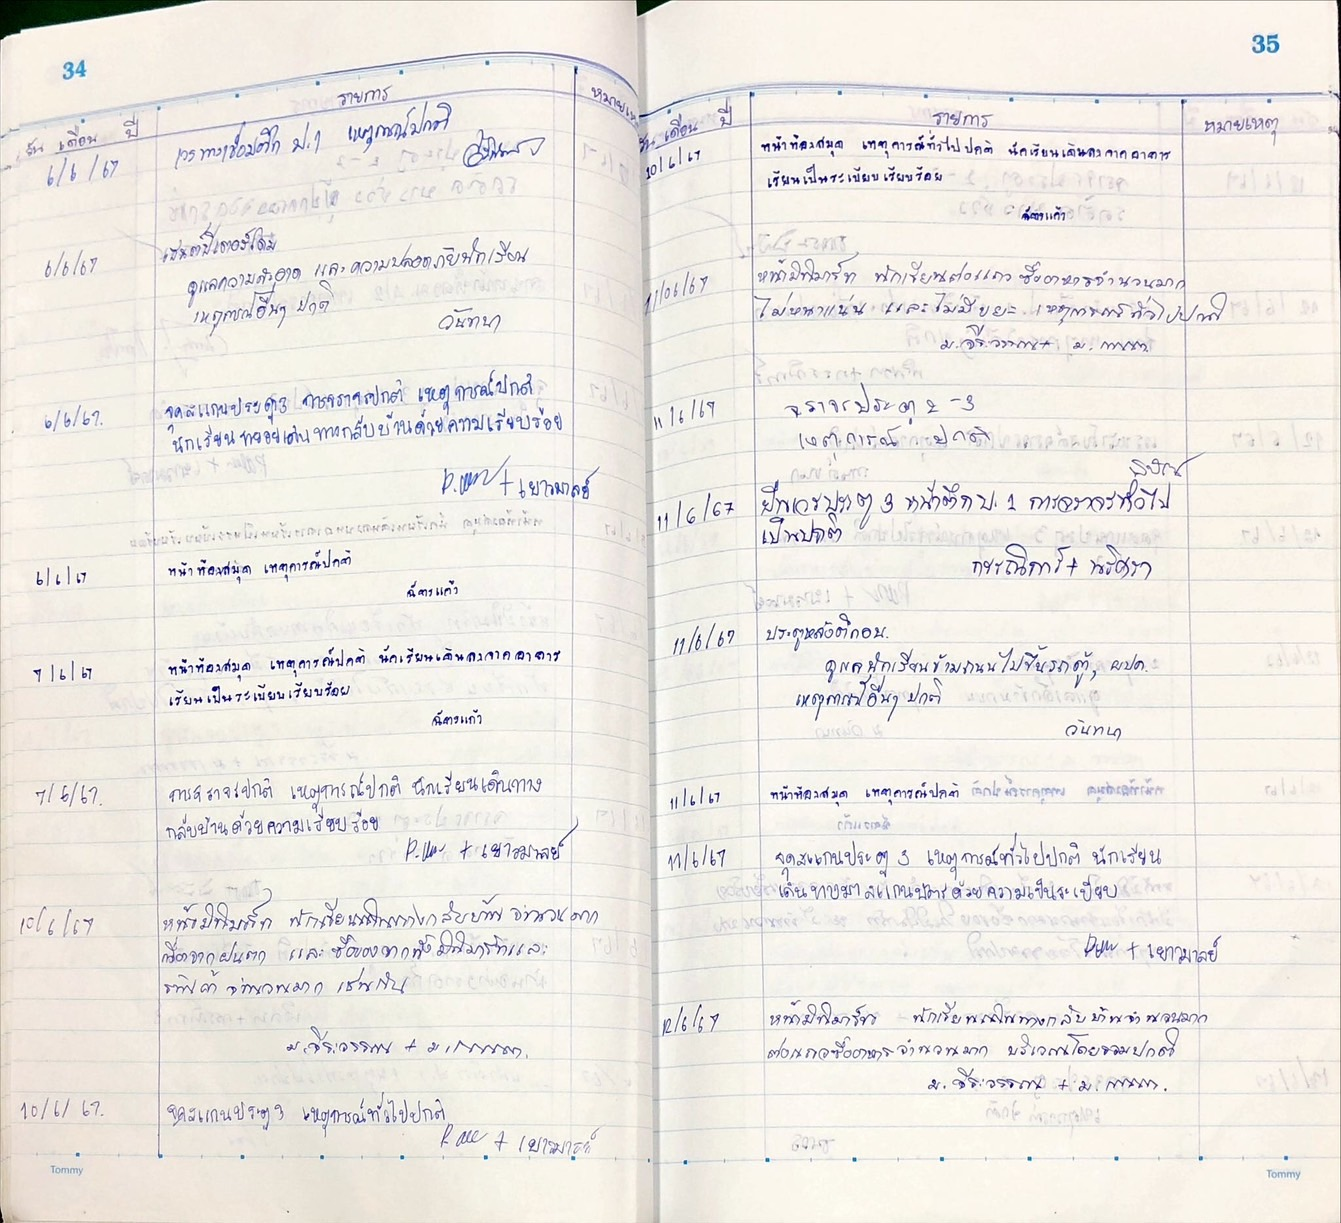 34
วัน เดือน ปี
รายการ
หมายเหตุ
6/6/67
เวรทางเชื่อมตึก ป.1 เหตุการณ์ปกติ
6/6/67
ดูแลความสะอาด และความปลอดภัยนักเรียน
เหตุการณ์อื่นๆ ปกติ
วันทนา
6/6/67.
จุดสแกนประตู 3 การจราจรปกติ เหตุการณ์ปกติ
นักเรียนทยอยเดินทางกลับบ้านด้วยความเรียบร้อย
+ เยาวมาลย์
6/6/67
หน้าห้องสมุด เหตุการณ์ปกติ
ฉัตรแก้ว
7/6/67
หน้าห้องสมุด เหตุการณ์ปกติ นักเรียนเดินลงจากอาคาร
เรียนเป็นระเบียบเรียบร้อย
ฉัตรแก้ว
7/6/67.
การจราจรปกติ เหตุการณ์ปกติ นักเรียนเดินทาง
กลับบ้านด้วยความเรียบร้อย
+ เยาวมาลย์
10/6/67
หน้ามินิมาร์ท นักเรียนเดินทางกลับบ้าน จำนวนมาก
เนื่องจากฝนตก และซื้อของจากทั้งมินิมาร์ทและ
ร้านค้า จำนวนมาก เช่นกัน
ม.จีระวรรณ + ม.
10/6/67.
จุดสแกนประตู 3 เหตุการณ์ทั่วไปปกติ
+ เยาวมาลย์
Tommy
35
วัน เดือน ปี
รายการ
หมายเหตุ
10/6/67
หน้าห้องสมุด เหตุการณ์ทั่วไปปกติ นักเรียนเดินลงจากอาคาร
เรียนเป็นระเบียบเรียบร้อย
ฉัตรแก้ว
11/06/67
หน้ามินิมาร์ท นักเรียนต่อแถว ซื้ออาหารจำนวนมาก
ไม่หนาแน่น และไม่มีขยะ เหตุการณ์ทั่วไปปกติ
ม.จีระวรรณ + ม.
11/6/67
จราจรประตู 2-3
เหตุการณ์ปกติ
11/6/67
ยืนเวรประตู 3 หน้าตึก ป.1 การจราจรทั่วไป
เป็นปกติ
กรรณิการ์ + นริศรา
11/6/67
ประตูหลังตึกอบ.
ดูแลนักเรียนข้ามถนนไปขึ้นรถตู้, ผปค.
เหตุการณ์อื่นๆ ปกติ
วันทนา
11/6/67
หน้าห้องสมุด เหตุการณ์ปกติ
ฉัตรแก้ว
11/6/67
จุดสแกนประตู 3 เหตุการณ์ทั่วไปปกติ นักเรียน
เดินทางมาสแกนบัตรด้วยความเป็นระเบียบ
+ เยาวมาลย์
12/6/67
หน้ามินิมาร์ท นักเรียนเดินทางกลับบ้านจำนวนมาก
ต่อแถวซื้ออาหารจำนวนมาก บริเวณโดยรอบปกติ
ม.จีระวรรณ + ม.
Tommy